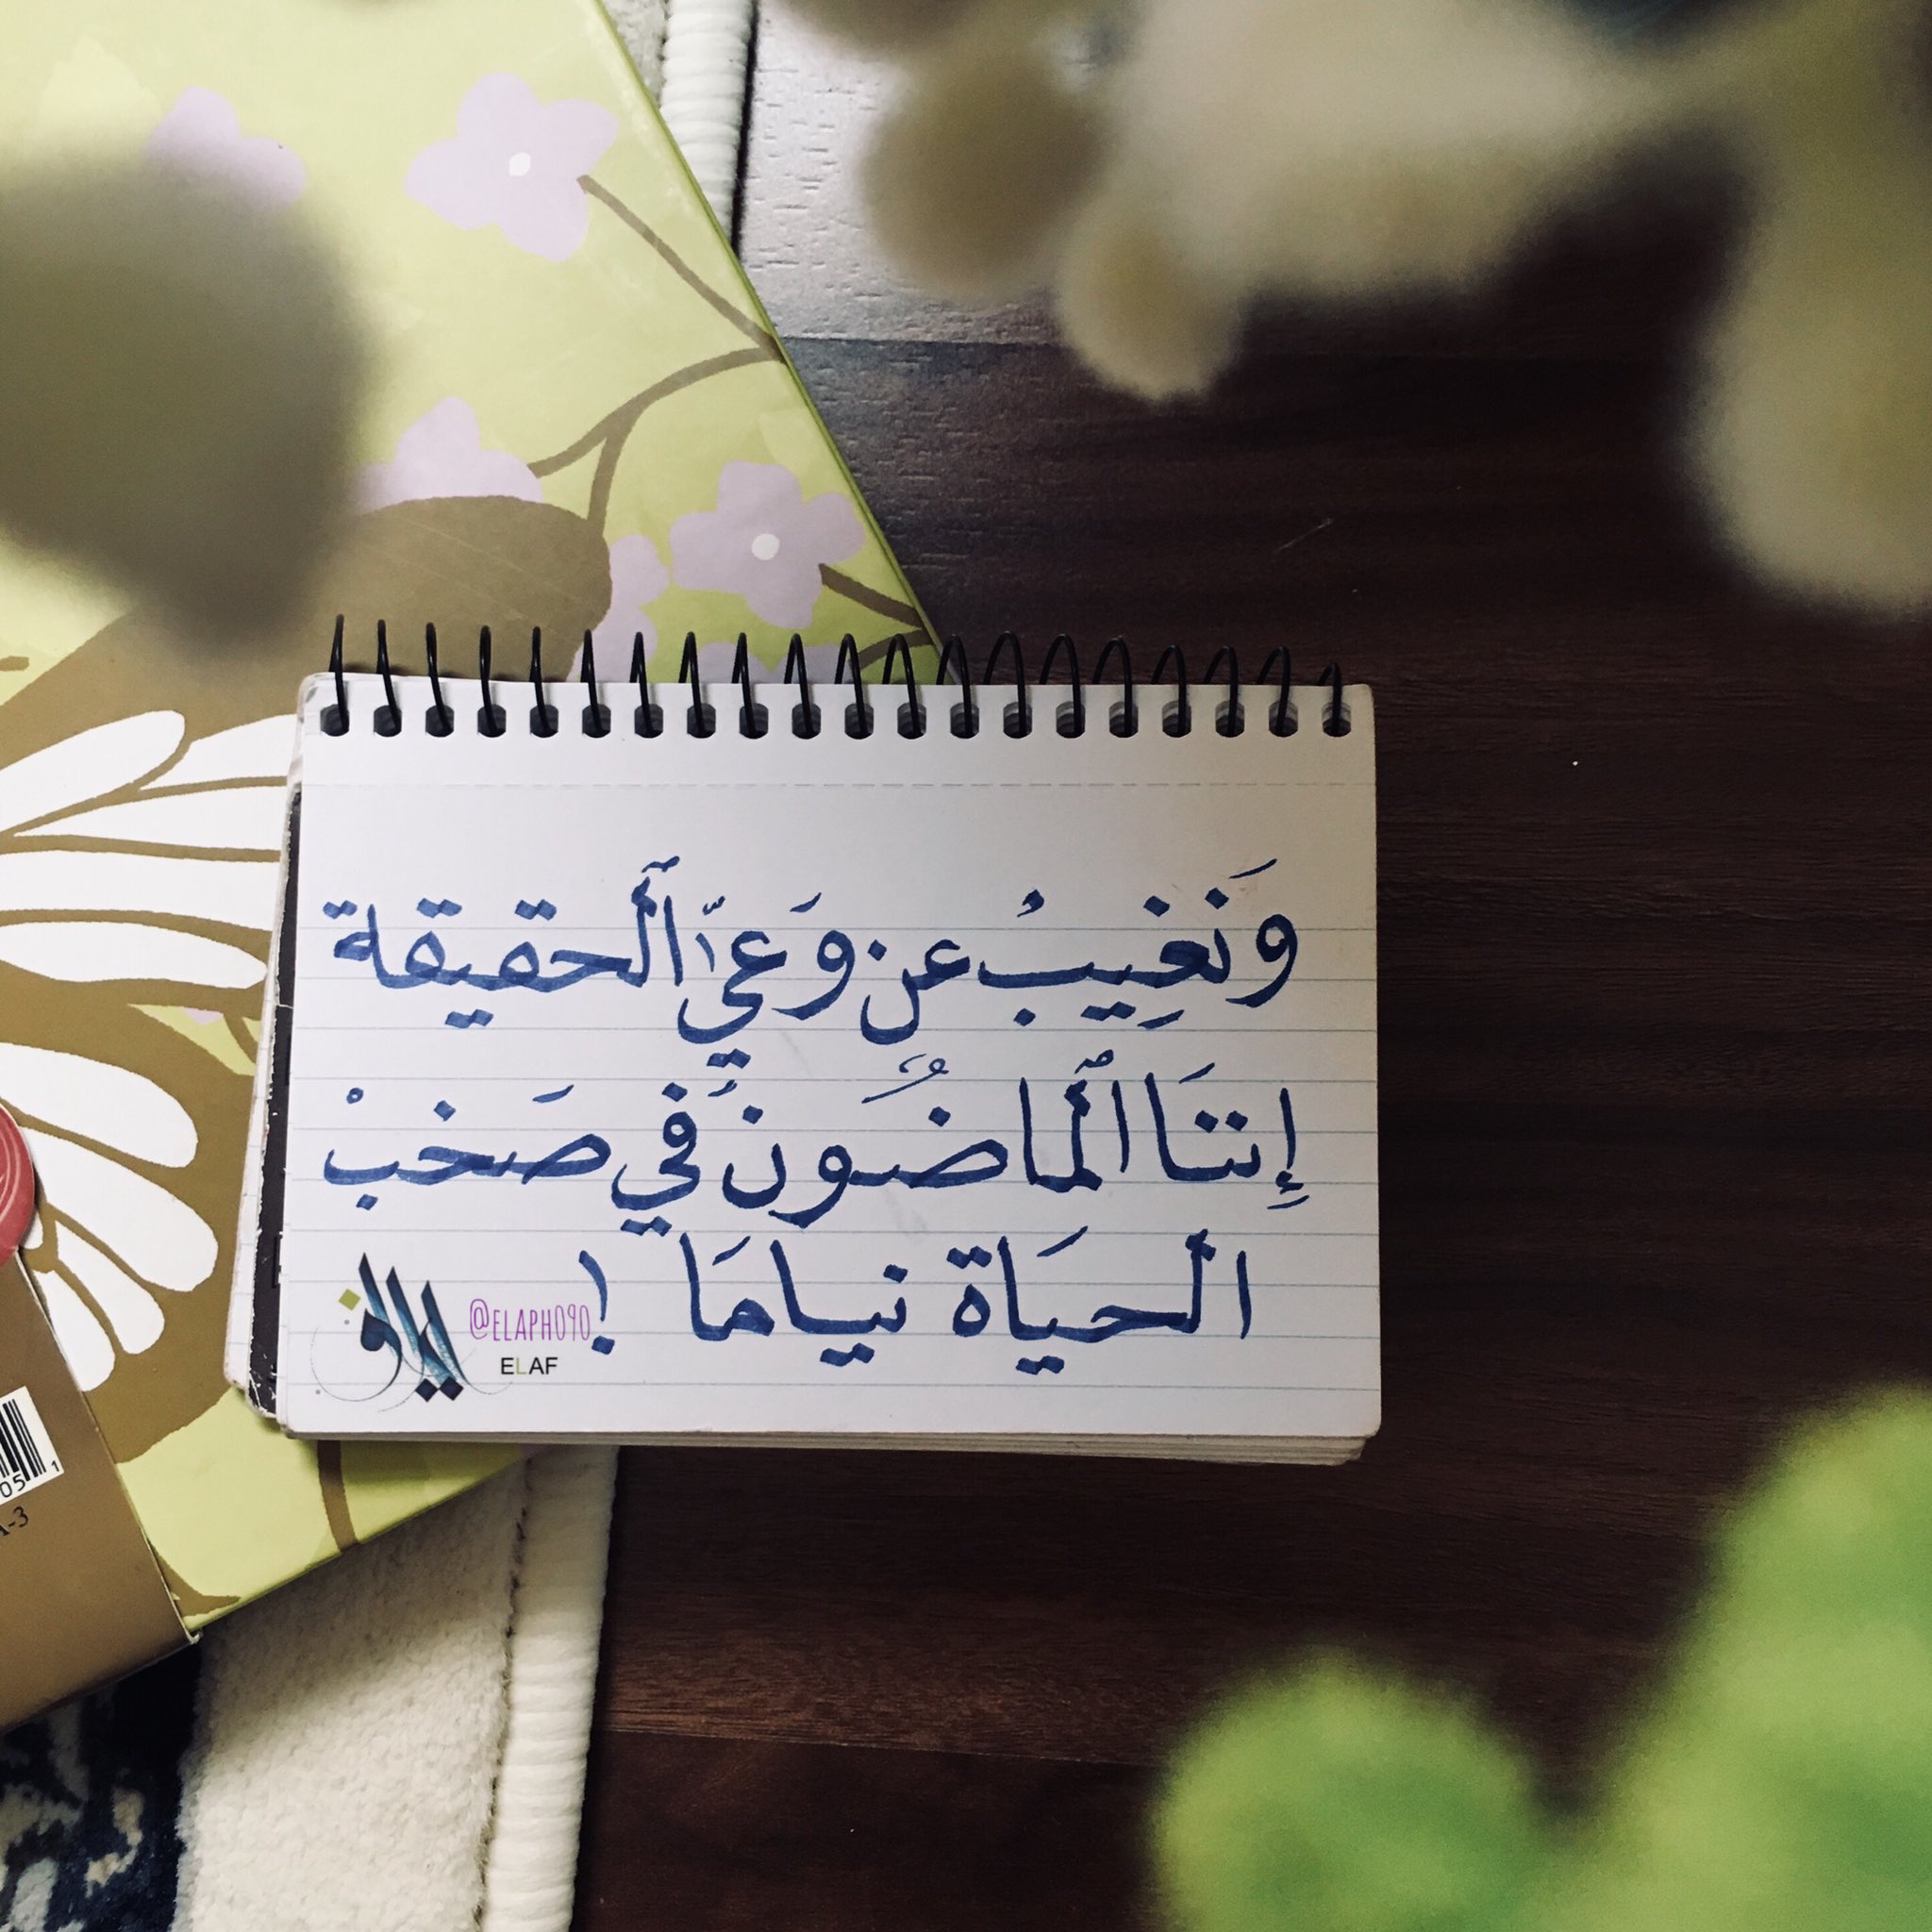 وَنَغِيبُ عن وَعيّ الحقيقة
إننَا الماضُونَ في صَخبْ
الحيَاة نيامَا !
إيلاف
@ELAPH090
ELAF
05 1
A-3